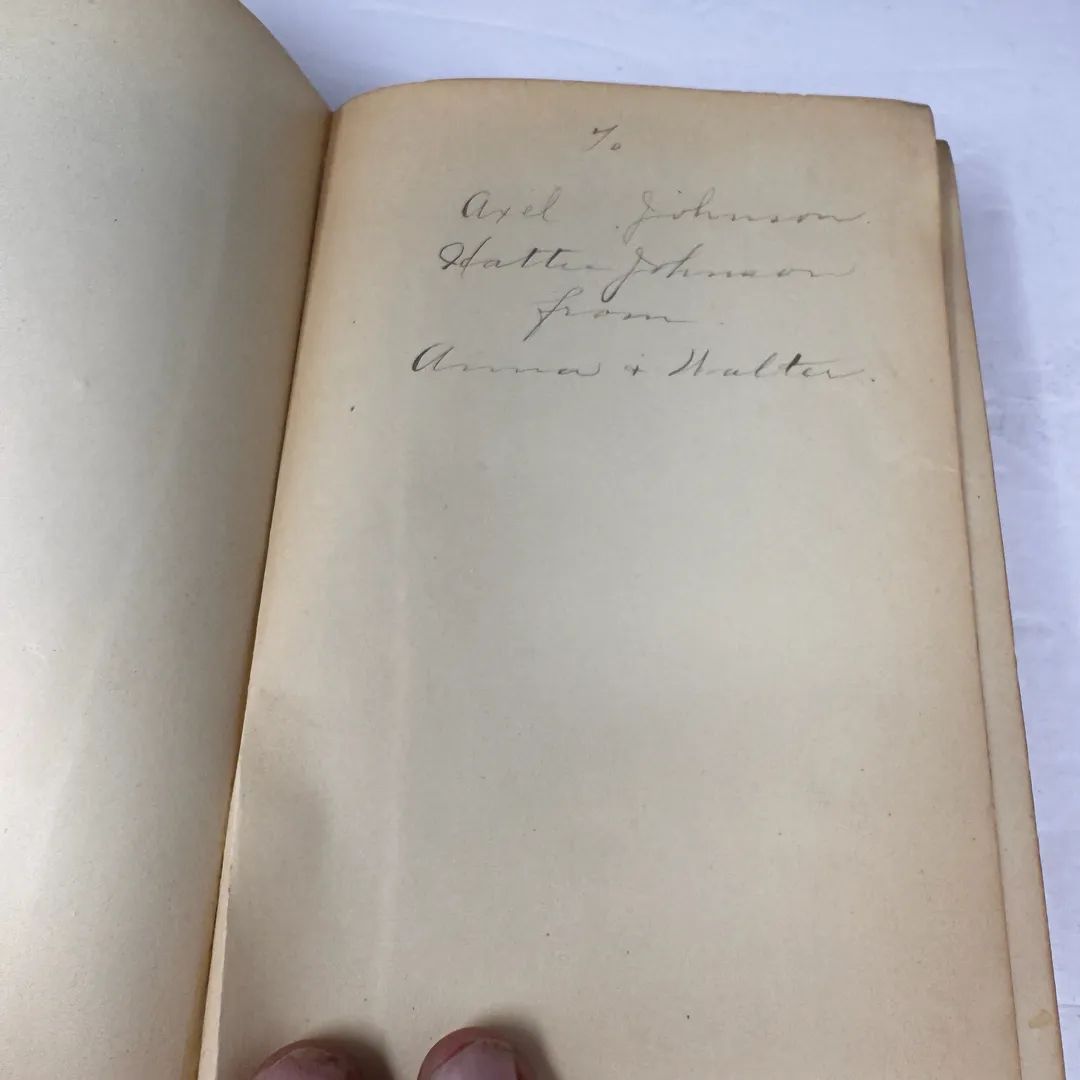 To
Axel Johnson.
Hattie Johnson
from
Anna + Walter.